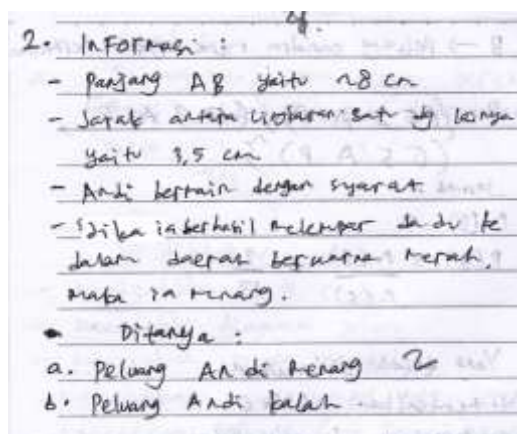 2. Informasi :
- Panjang AB yaitu 28 cm
- Jarak antara lingkaran satu dg lainnya
yaitu 3,5 cm
- Andi bermain dengan syarat
- Jika ia berhasil melempar dadu ke
dalam daerah berwarna merah,
maka ia menang.
• Ditanya :
a. Peluang Andi menang
b. Peluang Andi kalah